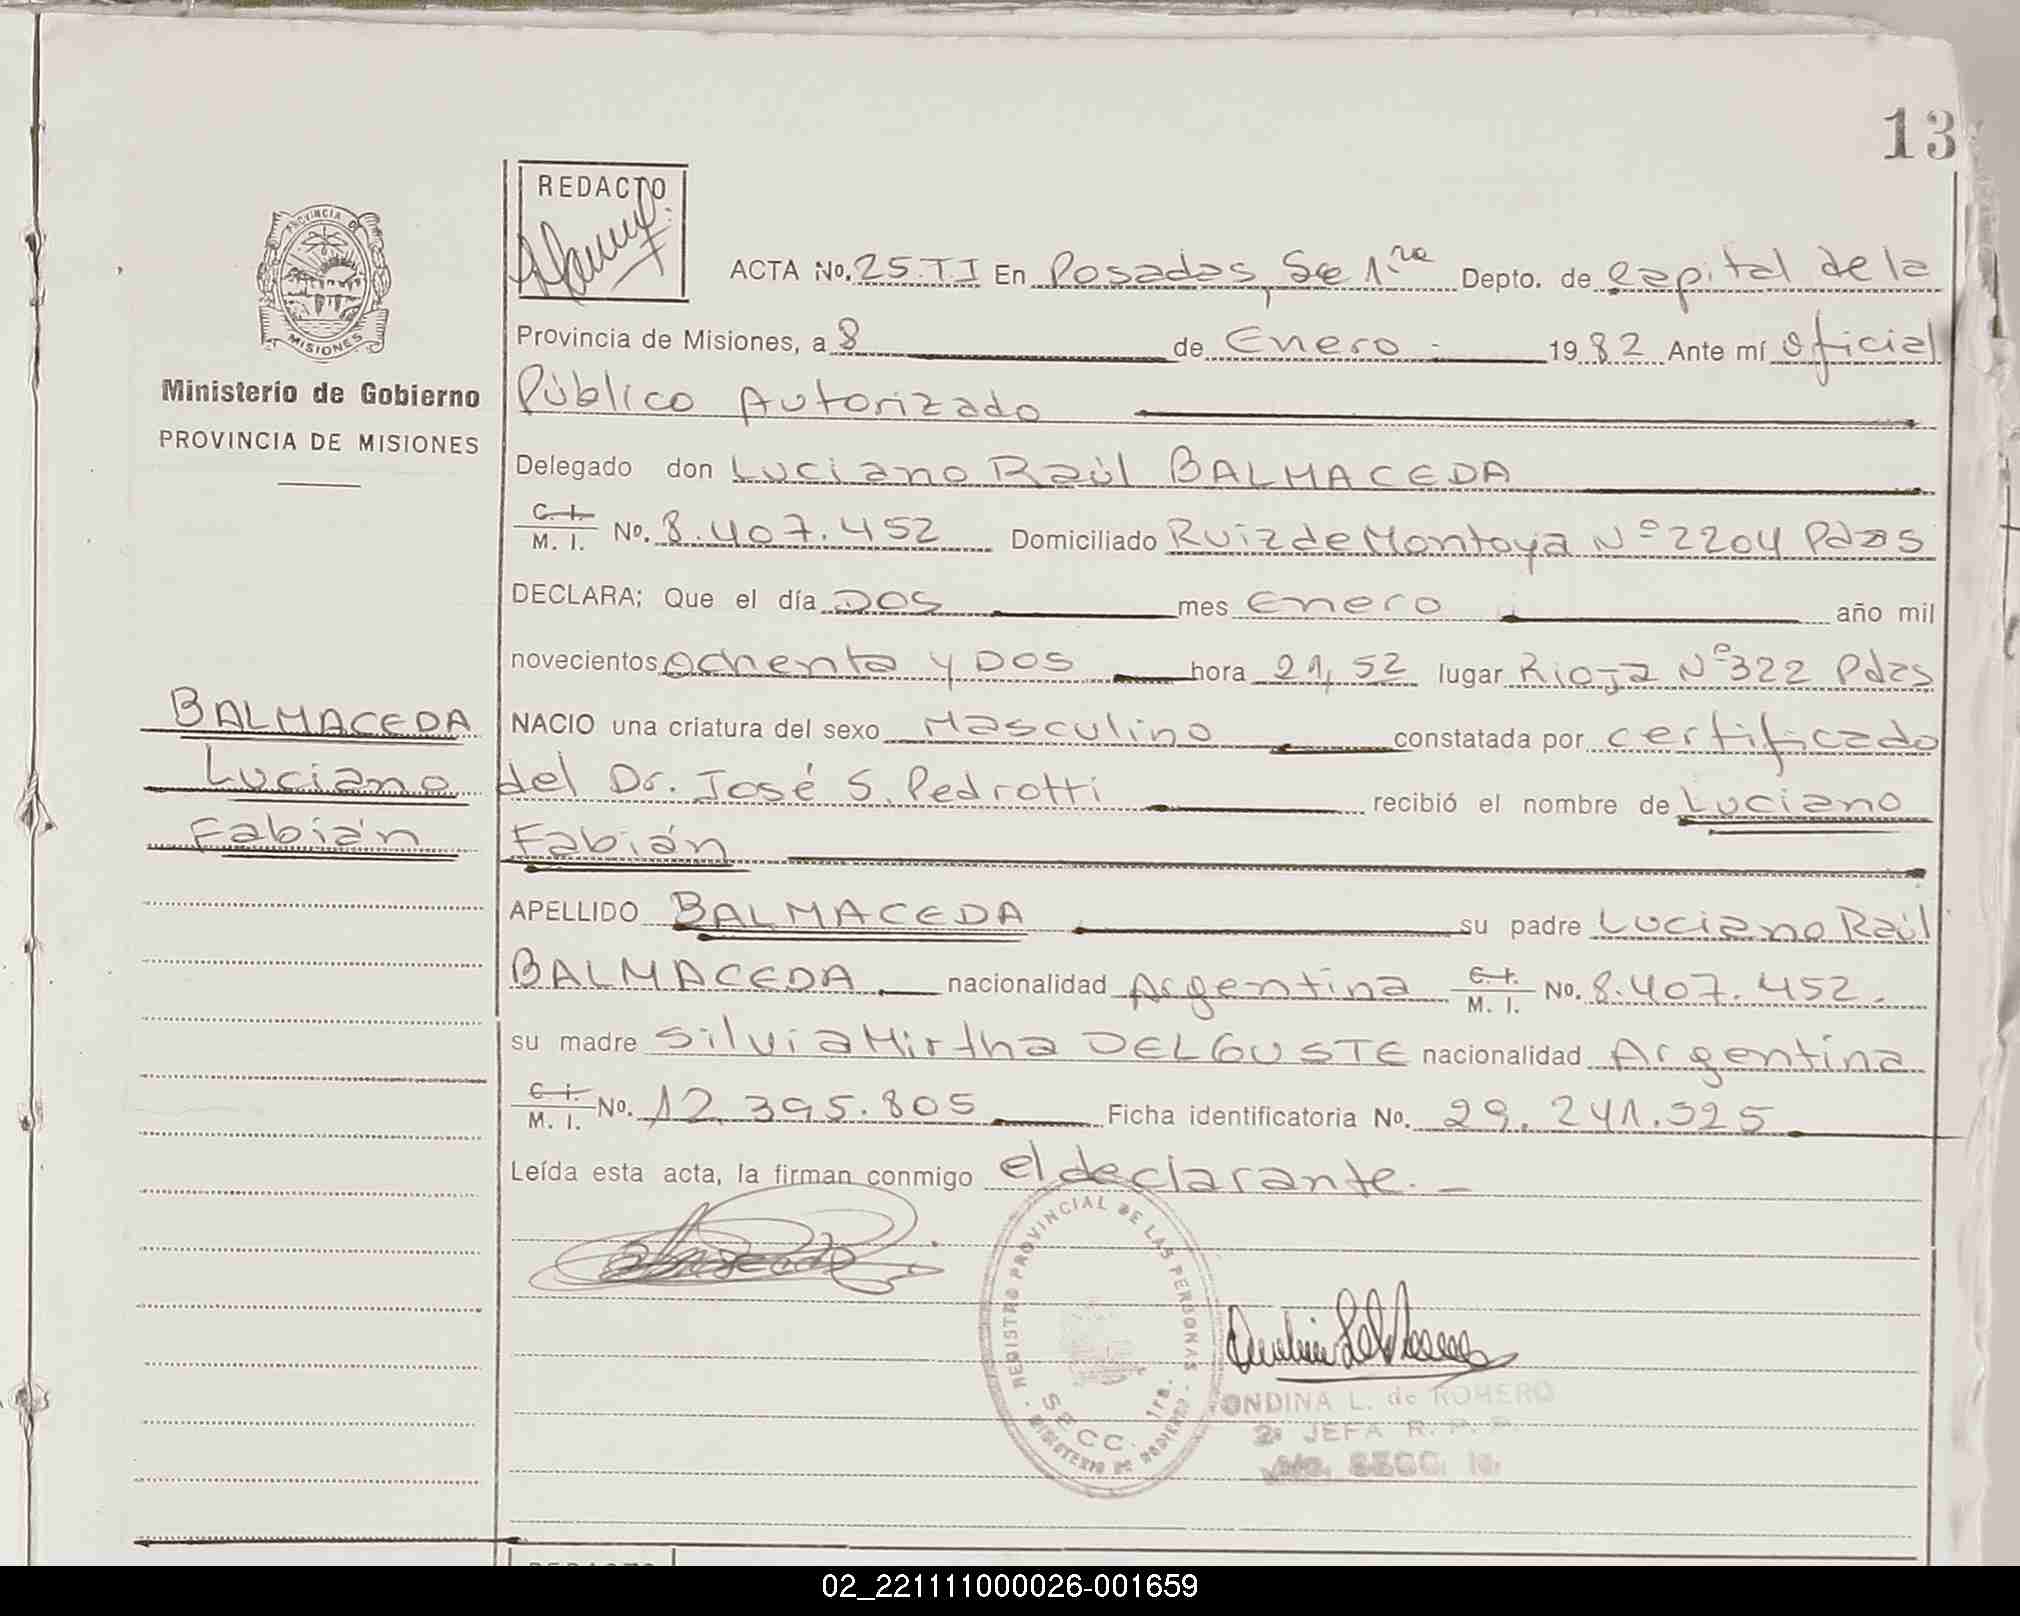 13
REDACTO
PROVINCIA DE
MISIONES
Ministerio de Gobierno
PROVINCIA DE MISIONES
BALMACEDA
Luciano
Fabián
ACTA No. 25.TI En Posadas, Se 1ra Depto. de Capital de la
Provincia de Misiones, a 8 de Enero 1982 Ante mí Oficial
Público Autorizado
Delegado don Luciano Raúl BALMACEDA
C. I. M. I. No. 8.407.452 Domiciliado Ruiz de Montoya Nº 2204 Pdas
DECLARA; Que el día DOS mes Enero año mil
novecientos ochenta y DOS hora 21,52 lugar Rioja Nº 322 Pdas
NACIO una criatura del sexo Masculino constatada por certificado
del Dr. José S. Pedrotti recibió el nombre de Luciano
Fabián
APELLIDO BALMACEDA su padre Luciano Raúl
BALMACEDA nacionalidad Argentina C. I. M. I. No. 8.407.452.
su madre Silvia Mirtha DELGUSTE nacionalidad Argentina
C. I. M. I. No. 12.395.805 Ficha identificatoria No. 29.241.525
Leída esta acta, la firman conmigo el declarante.
REGISTRO PROVINCIAL DE LAS PERSONAS
SECC. 1ra.
MINISTERIO DE GOBIERNO
ONDINA L. de ROMERO
2º JEFA R. P. P.
REDACTO
02_221111000026-001659